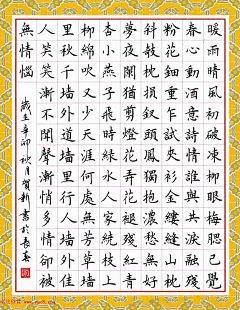 暖雨晴風初破凍柳眼梅腮已覺
春心動酒意詩情誰與共淚融殘
粉花鈿重乍試夾衫金縷縫山枕
斜敧枕損釵頭鳳獨抱濃愁無好
夢夜闌猶剪燈花弄花褪殘紅青
杏小燕子飛時綠水人家繞枝上
柳綿吹又少天涯何處無芳草墙
里秋千墙外道墙外行人墙里佳
人笑笑漸不聞聲漸悄多情卻被
無情惱
歲在辛卯秋月賀新書於長春